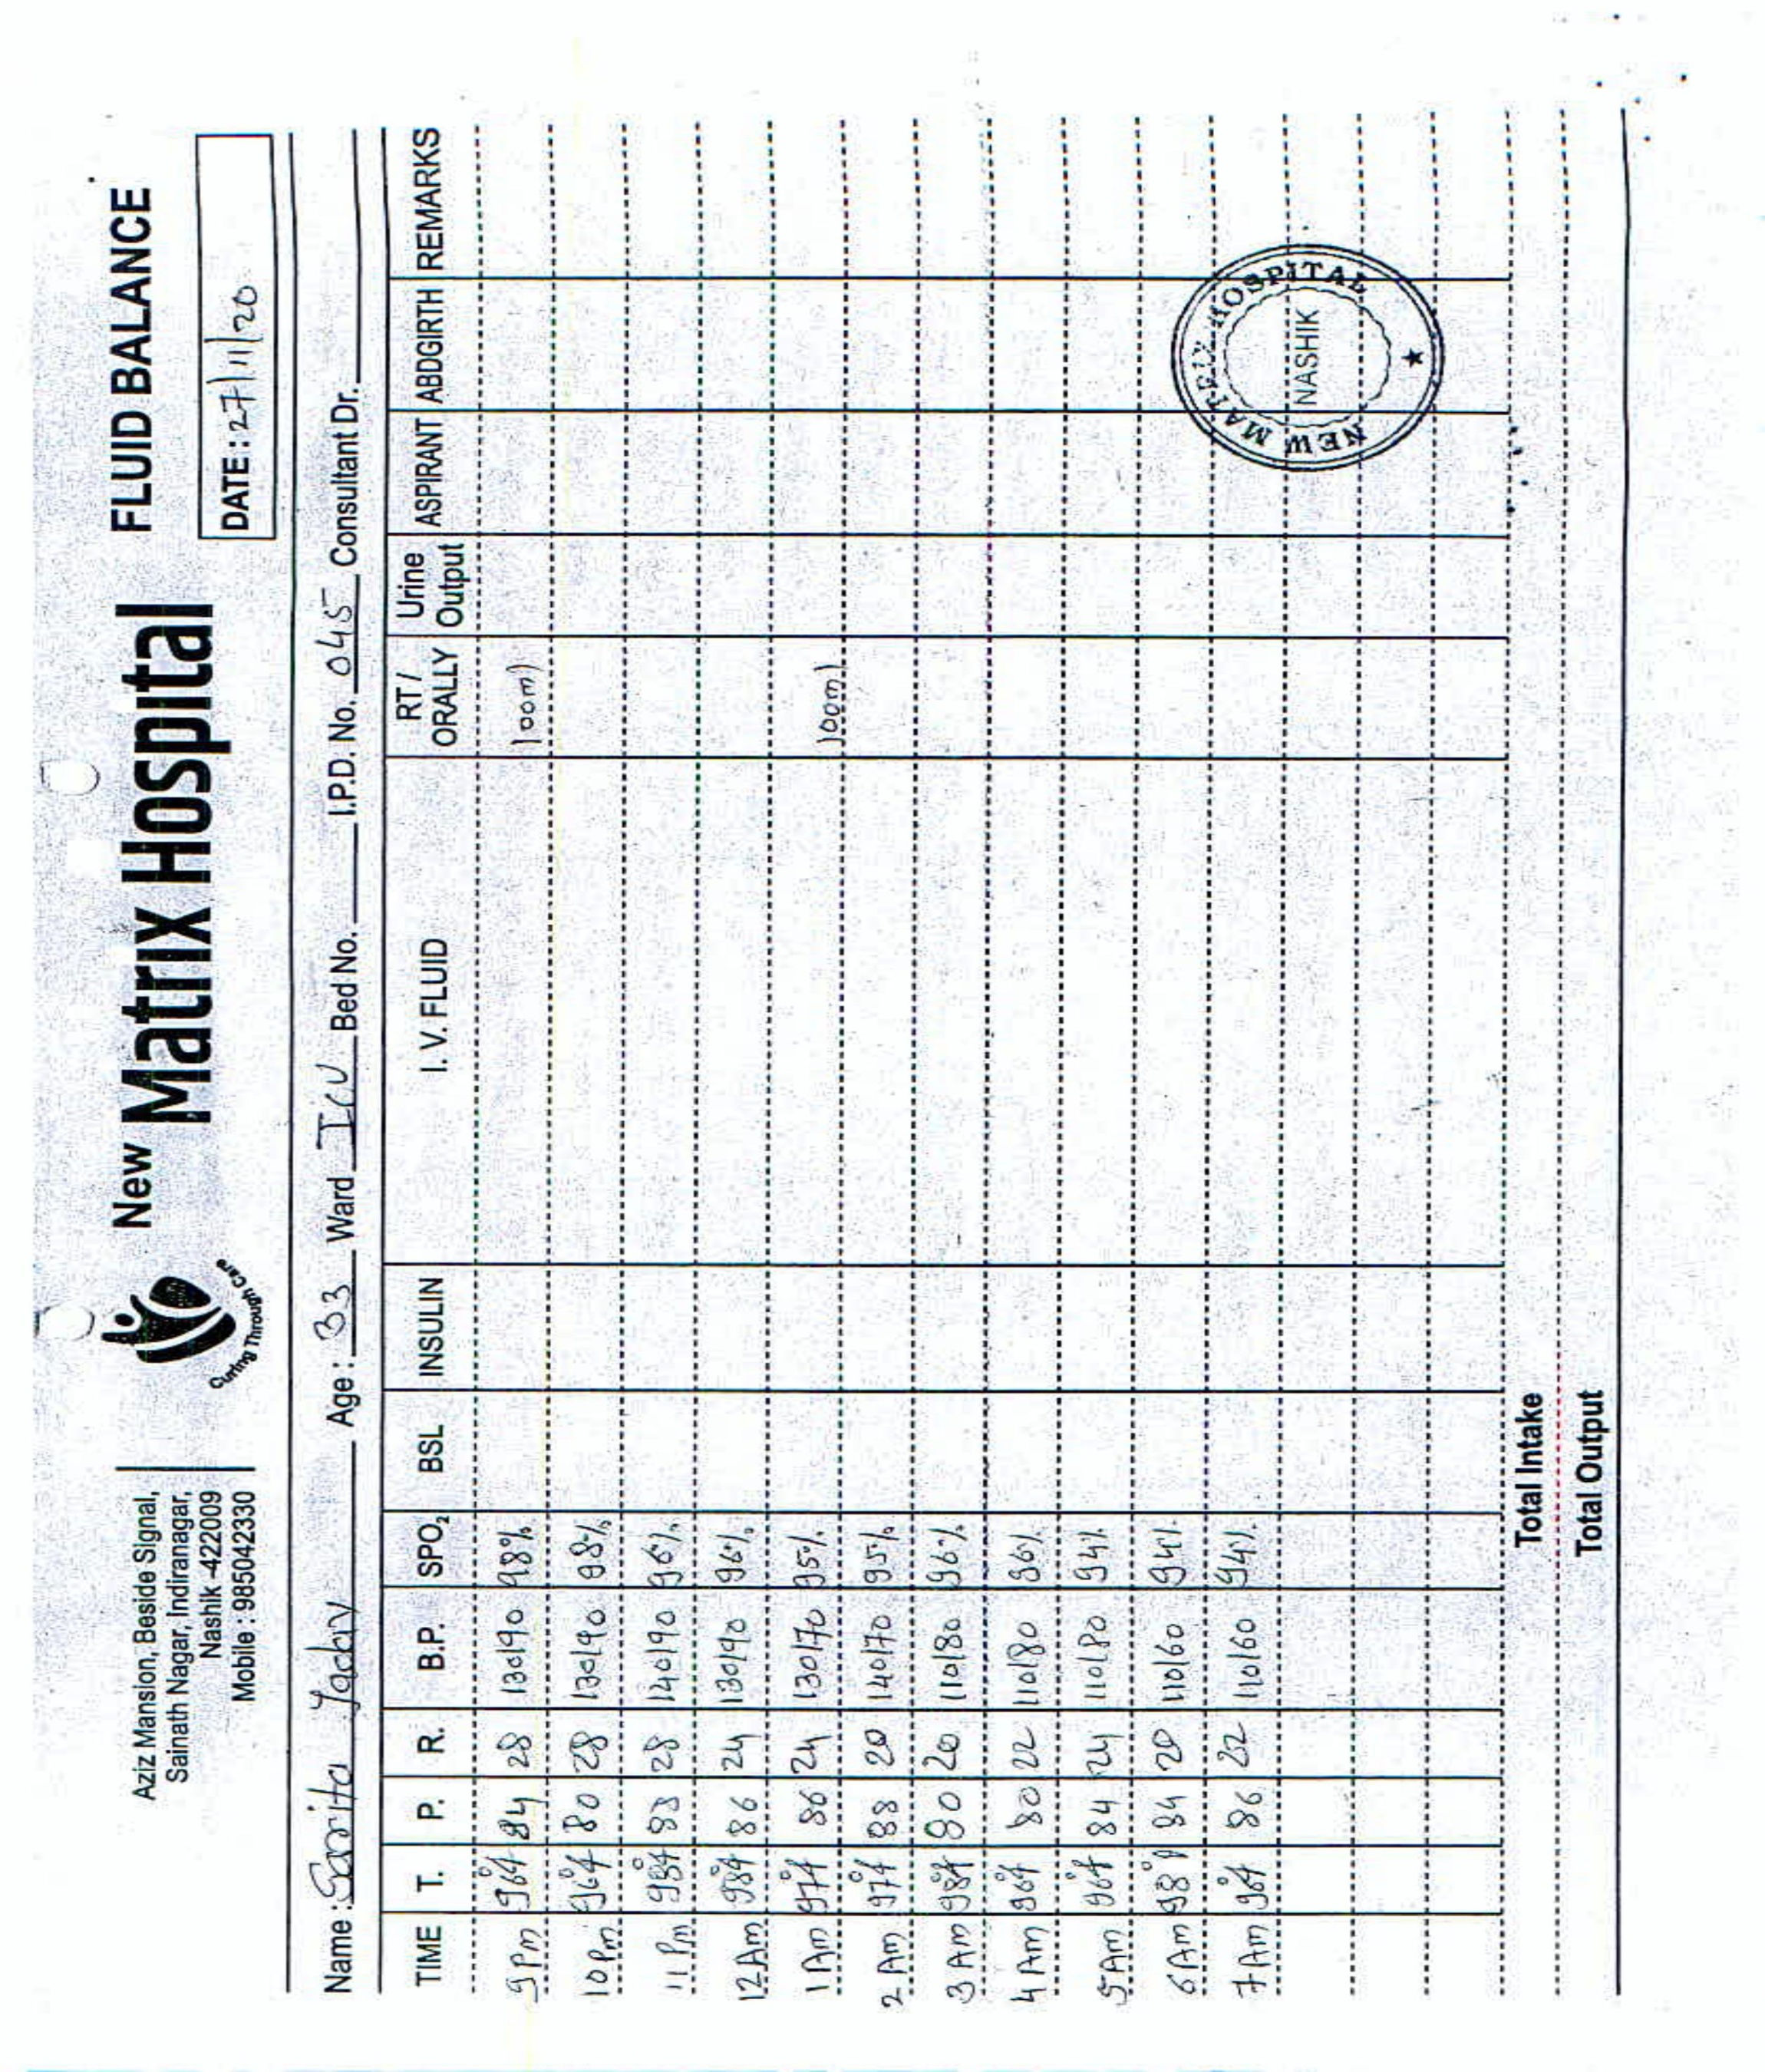 Aziz Mansion, Beside Signal,
Sainath Nagar, Indiranagar,
Nashik -422009
Mobile : 9850423300
Curing Through Care
New Matrix Hospital
FLUID BALANCE
DATE : 27/11/20
Name : Sarita Jadav Age : 33 Ward ICU Bed No. I.P.D. No. 045 Consultant Dr.
TIME T. P. R. B.P. SPO2 BSL INSULIN I. V. FLUID RT / ORALLY Urine Output ASPIRANT ABDGIRTH REMARKS
9 Pm 96°f 84 28 130/90 98% 100ml
10 Pm 96°f 80 28 130/90 98%
11 Pm 98°f 88 28 140/90 96%
12 Am 98°f 86 24 130/90 96%
1 Am 97°f 86 24 130/70 95% 100ml
2 Am 97°f 88 20 140/70 95%
3 Am 98°f 80 20 110/80 96%
4 Am 96°f 80 22 110/80 96%
5 Am 96°f 84 24 110/80 94%
6 Am 98°f 84 20 110/60 94%
7 Am 96°f 86 22 110/60 94%
NEW MATRIX HOSPITAL
NASHIK
Total Intake
Total Output